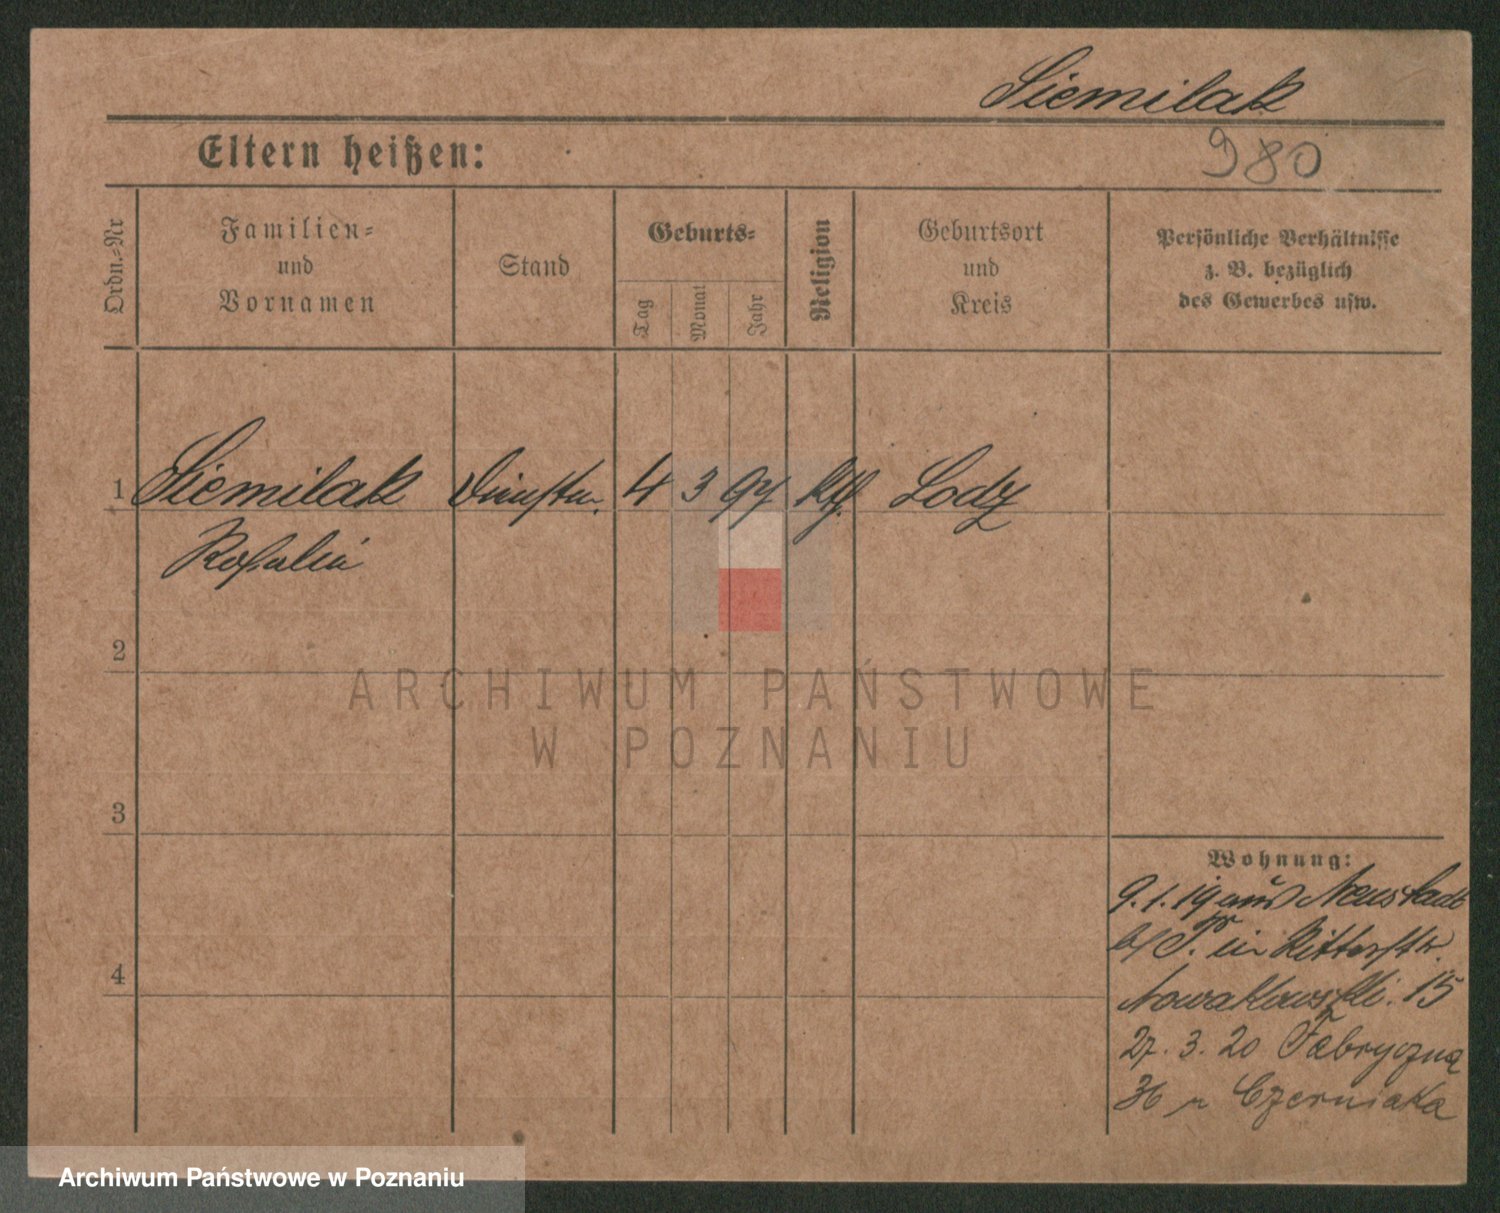 Siemilak
Eltern heißen:
980
Ordn.-Nr
Familien-
und
Vornamen
Stand
Geburts-
Tag
Monat
Jahr
Religion
Geburtsort
und
Kreis
Persönliche Verhältnisse
z. B. bezüglich
des Gewerbes usw.
1 Siemilak 4 3 97 kth. Lodz
Rosalia
2
3
4
Wohnung:
9. 1. 19 aus Neustadt
b/ P. in Ritterstr.
Nowakowski. 15
27. 3. 20 Fabryczna
36 u Czerniaka
ARCHIWUM PAŃSTWOWE
W POZNANIU
Archiwum Państwowe w Poznaniu